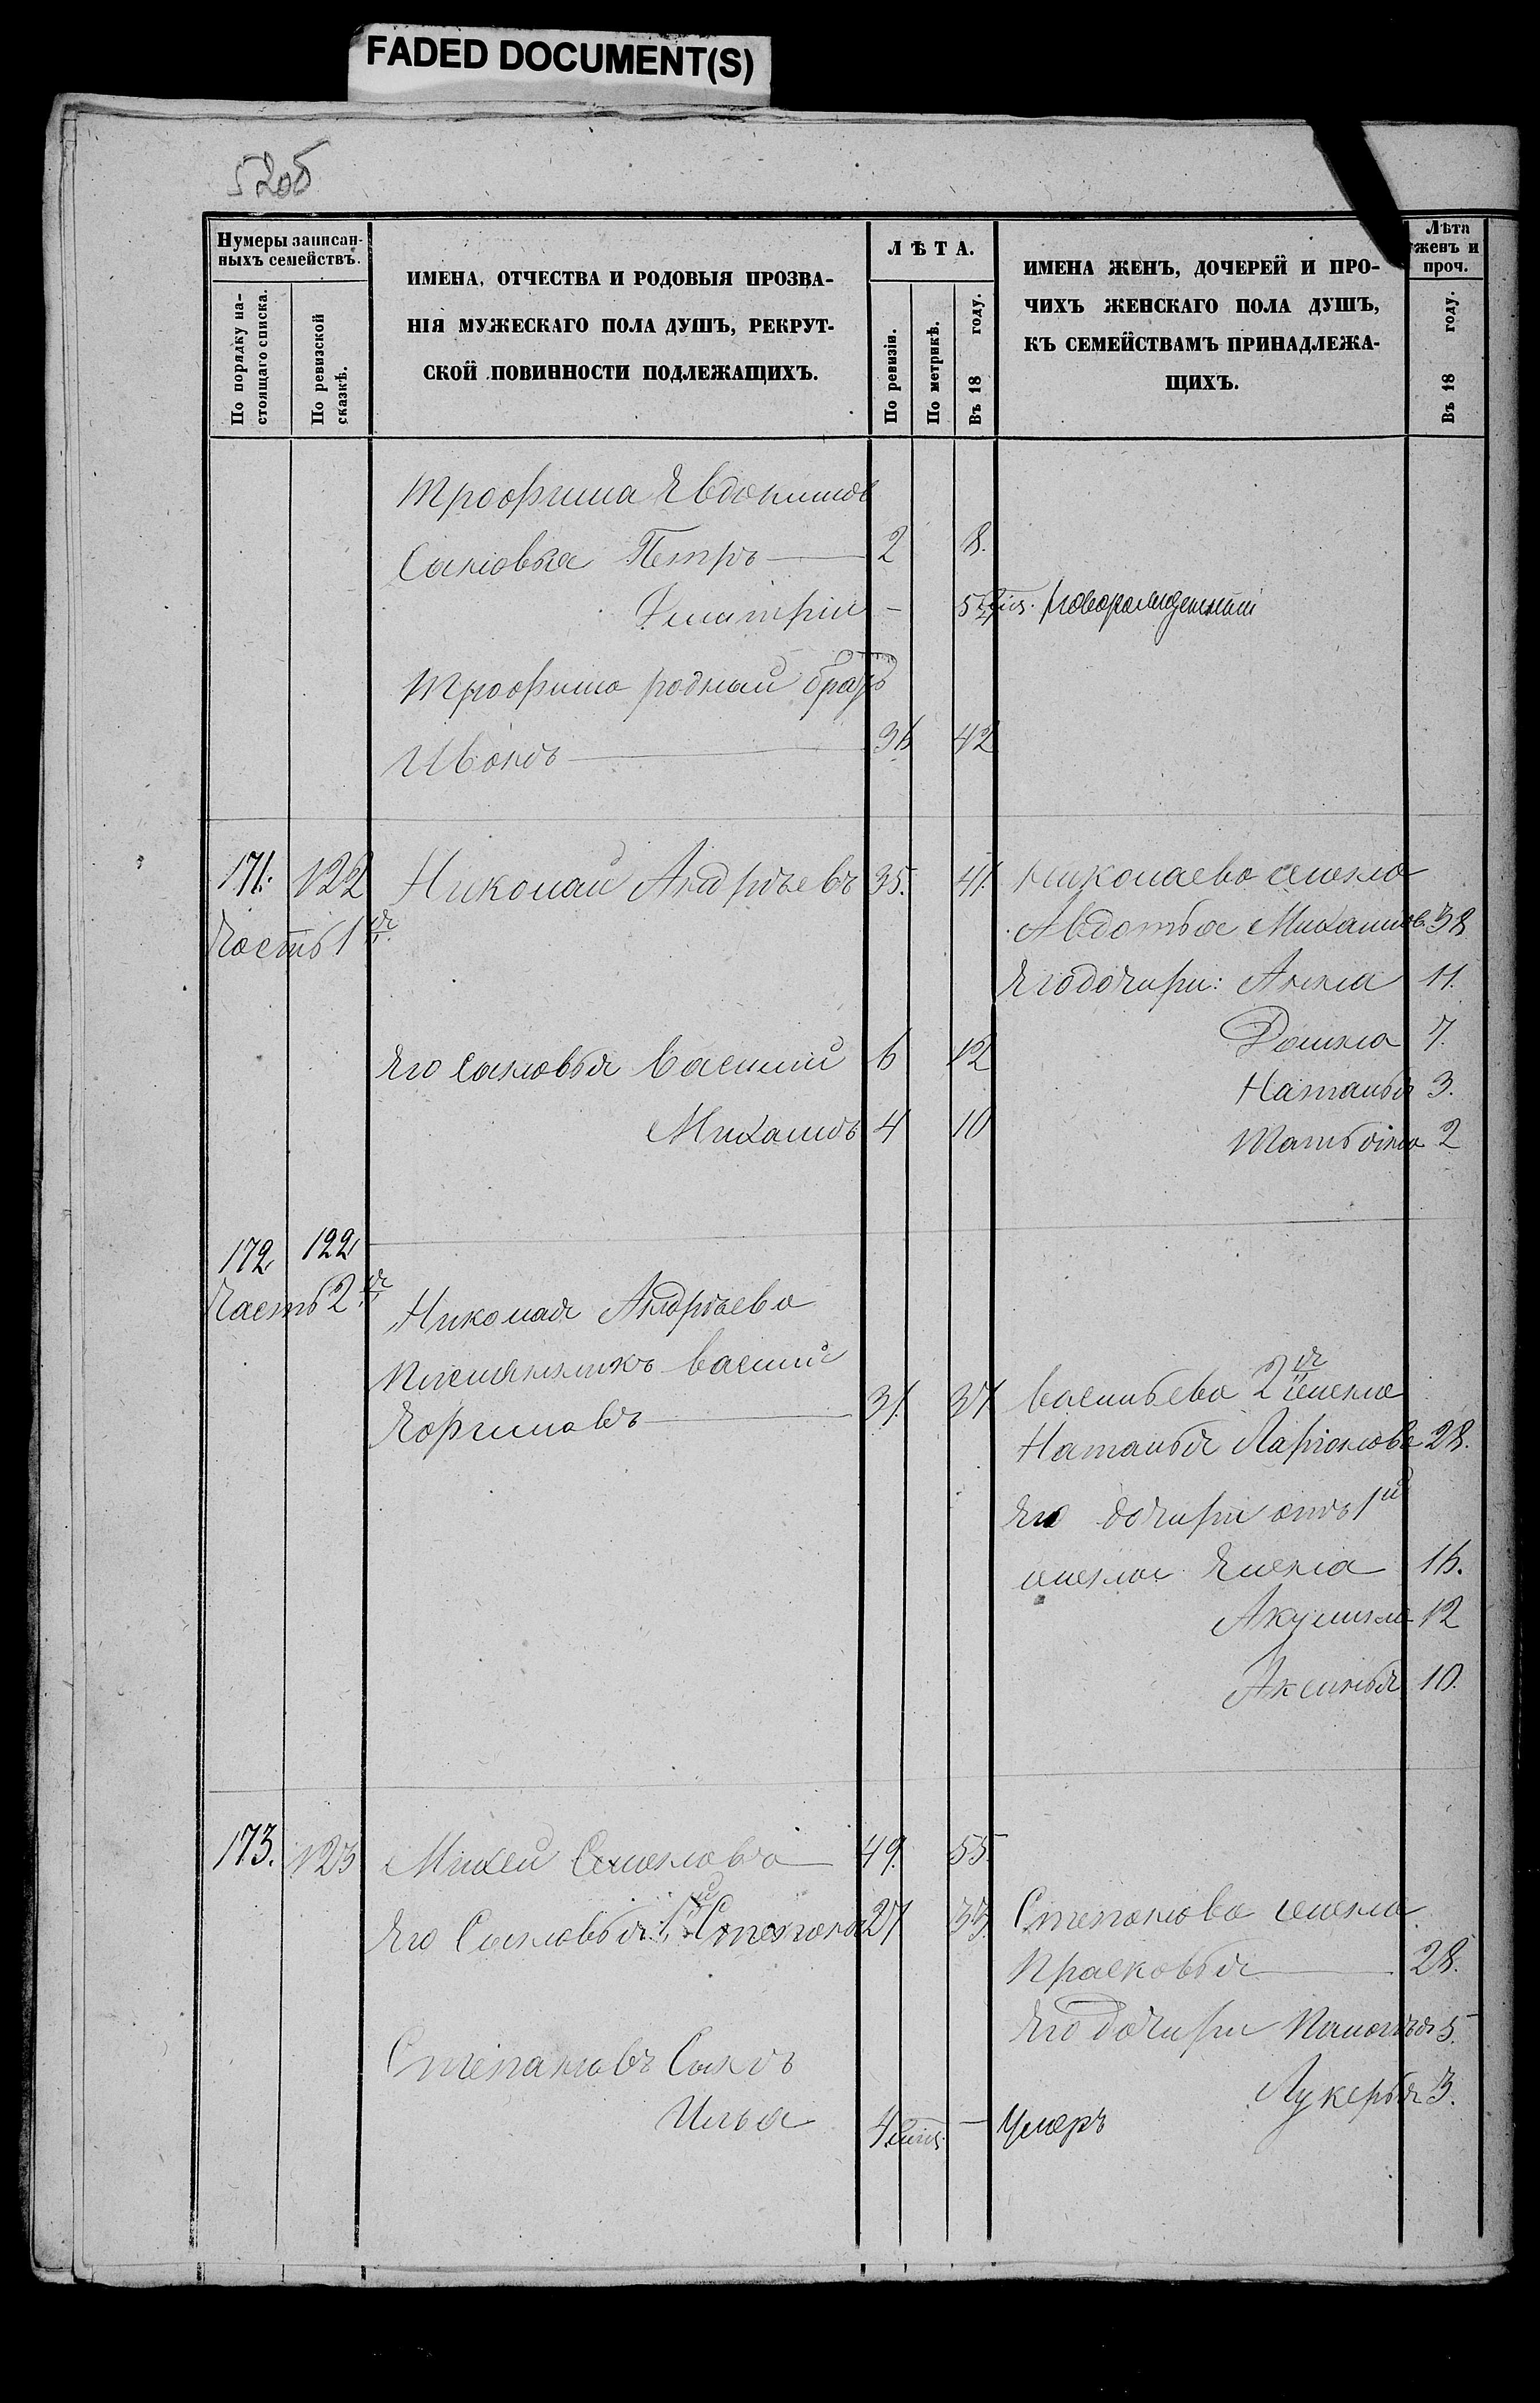 FADED DOCUMENT(S)
52об
Нумеры записан-
ныхъ семействъ.
По порядку на-
стоящаго списка.
По ревизской
сказкѣ.
ИМЕНА, ОТЧЕСТВА И РОДОВЫЯ ПРОЗВА-
НІЯ МУЖЕСКАГО ПОЛА ДУШЪ, РЕКРУТ-
СКОЙ ПОВИННОСТИ ПОДЛЕЖАЩИХЪ.
ЛѢТА.
По ревизіи.
По метрикѣ.
Въ 18 году.
ИМЕНА ЖЕНЪ, ДОЧЕРЕЙ И ПРО-
ЧИХЪ ЖЕНСКАГО ПОЛА ДУШЪ,
КЪ СЕМЕЙСТВАМЪ ПРИНАДЛЕЖА-
ЩИХЪ.
Лѣта
женъ и
проч.
Въ 18 году.
Трофима Евдокимов
Сыновья Петръ — 2 8.
Дмитрій - новорожденный
Трофима родный братъ
Иванъ — 36 42
171. 122 Николай Андрѣевъ 35. 41. Николаева жена
Часть 1я Авдотья Михайлов 38
Его дочири: Анна 11.
Домна 7.
Его Сыновья Василий 6 12
Наталья 3.
Михаилъ 4 10
Татьяна 2
172 122
Часть 2я Николая Андрѣева
племянникъ Василий
Ефимовъ — 31. 37 Васильева 2я жена
Наталья Ларіонова 28.
Его дочири отъ 1й
жены Елена 16.
Акулина 12
Аксинья 10.
173. 123 Михей Семеновъ — 49. 55.
Его Сыновья: 1й Степанъ 27 33. Степанова жена
Прасковья — 28.
Его дочири Пелагѣя 5.
Степановъ Сынъ
Лукерья 3.
Илья 4 — умеръ